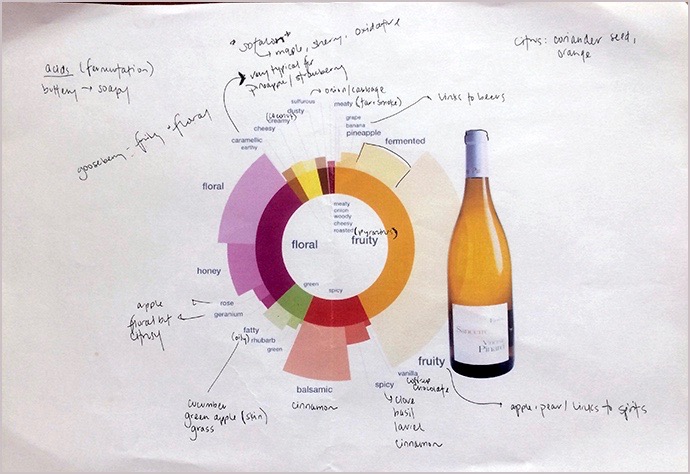 * sotalon *
→ maple, sherry, oxidative
citrus: coriander seed,
orange
acids (fermentation)
buttery → soapy
very typical for
pineapple/strawberry
gooseberry = fruity + floral
→ onion/cabbage
sulfurous
dusty
(coconut)
creamy
cheesy
caramellic
earthy
meaty (tar, smoke)
→ links to beers
grape
banana
pineapple
fermented
floral
honey
rose
geranium
apple
floral but
citrusy
fatty
(oily)
rhubarb
green
meaty
onion
woody
cheesy
roasted
floral
fruity
green
spicy
fruity
vanilla
chocolate
spicy
clove
basil
laurel
cinnamon
balsamic
cinnamon
cucumber
green apple (skin)
grass
→ apple, pear / links to spirits
Sancerre
Vincent
Pinard